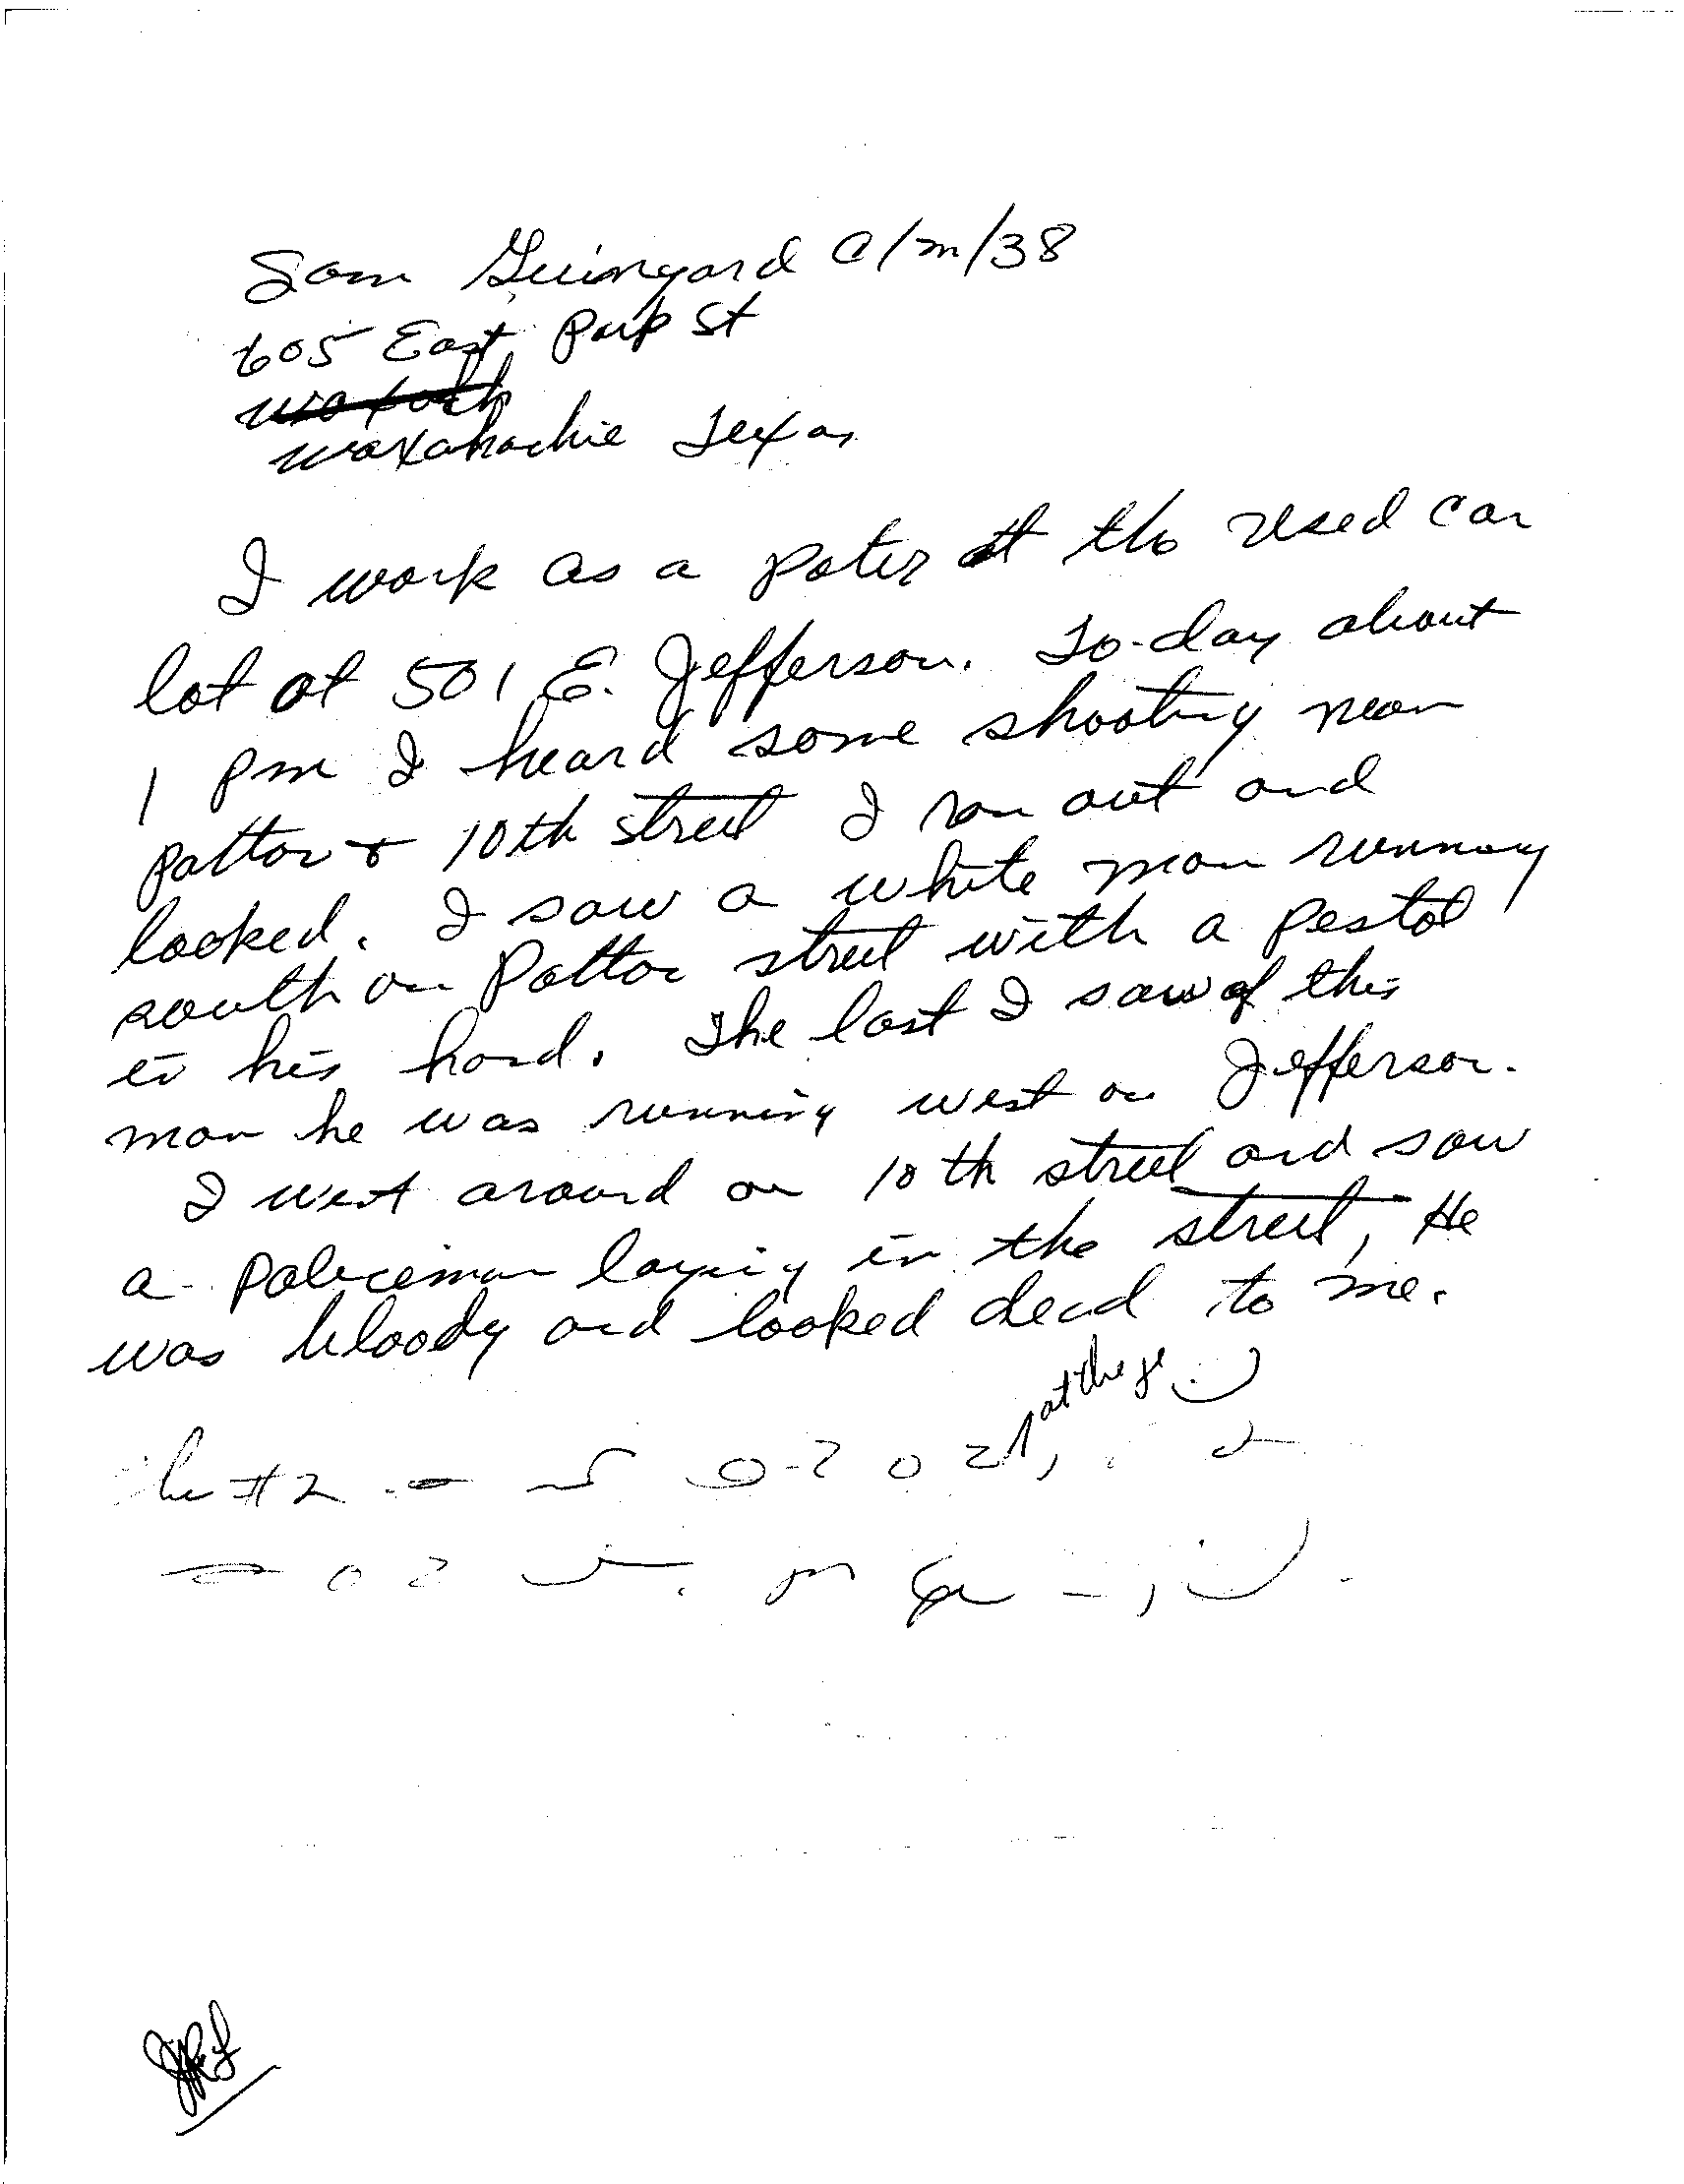 Sam Guinyard C/m/38
605 East Park St
Waxahachie Texas
I work as a poter at the used car
lot at 501 E. Jefferson. To-day about
1 pm I heard some shooting near
Patton & 10th street I ran out and
looked. I saw a white man running
south on Patton street with a pestol
in his hand. The last I saw of this
man he was running west on Jefferson.
I went around on 10th street and saw
a policeman laying in the street, He
was bloody and looked dead to me.
at the
#2